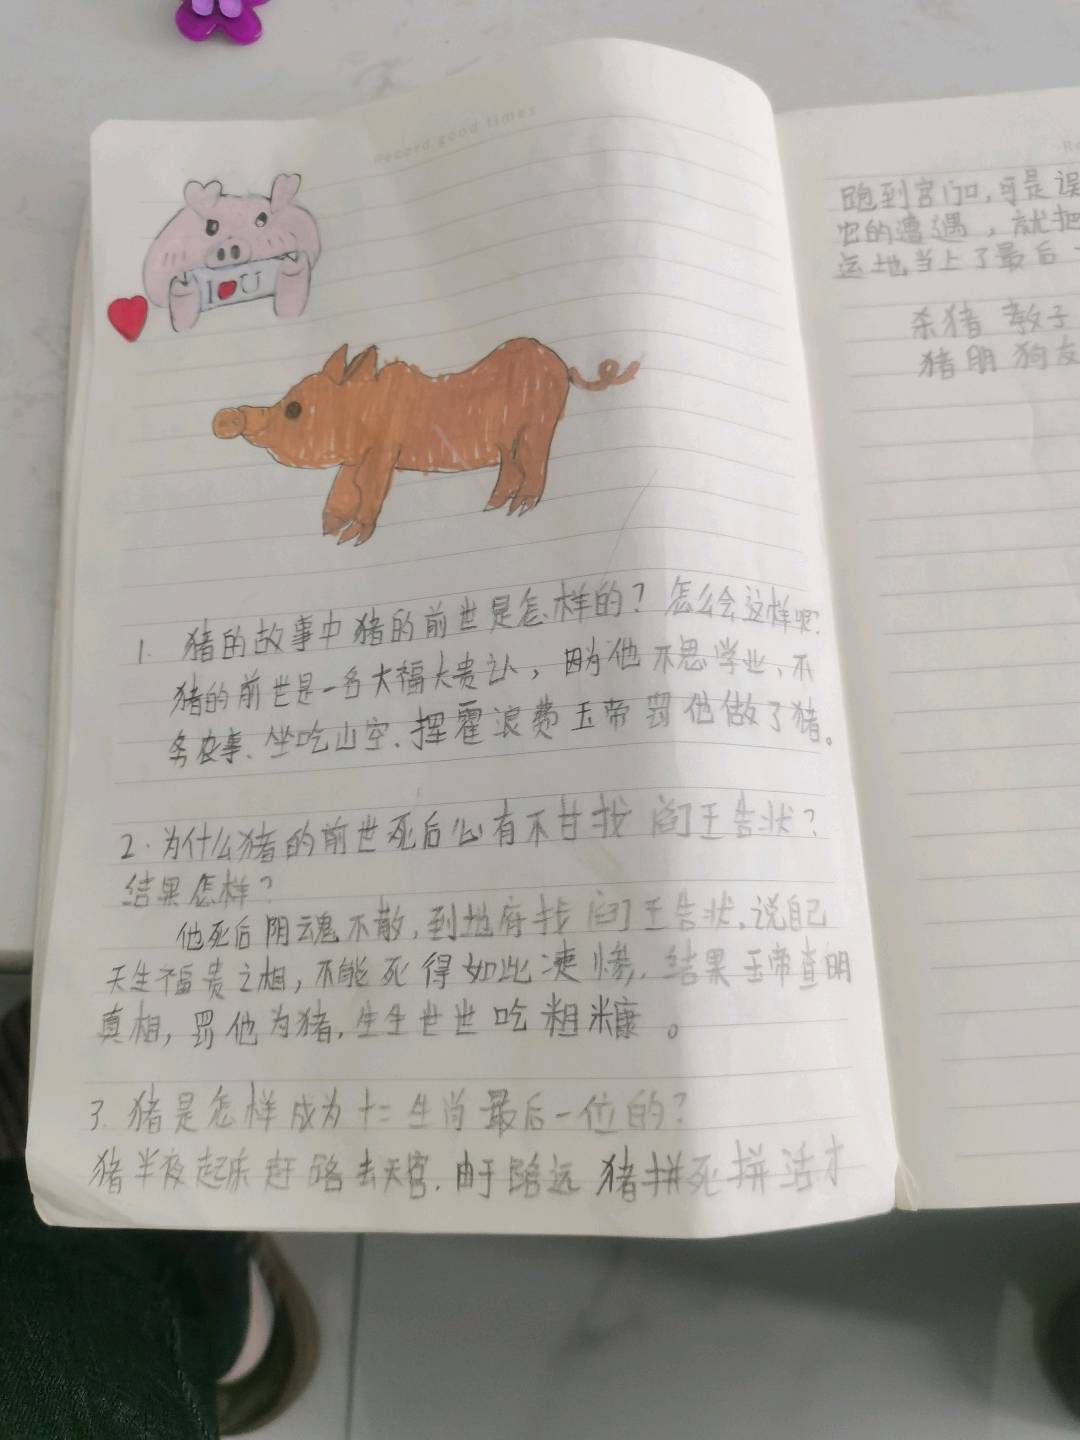 Record good times
I U
1. 猪的故事中猪的前世是怎样的？怎么会这样呢.
猪的前世是一名大福大贵认，因为他不思学业、不
务农事、坐吃山空、挥霍浪费玉帝罚他做了猪。
2. 为什么猪的前世死后心有不甘找阎王告状？
结果怎样？
他死后阴魂不散，到地府找阎王告状，说自己
天生福贵之相，不能死得如此凄惨，结果玉帝查明
真相，罚他为猪，生生世世吃粗糠。
3. 猪是怎样成为十二生肖最后一位的？
猪半夜起床赶路去天宫，由于路远猪拼死拼活才
跑到宫门口，可是误
的遭遇，就把
运地当上了最后
杀猪教子
猪朋狗友